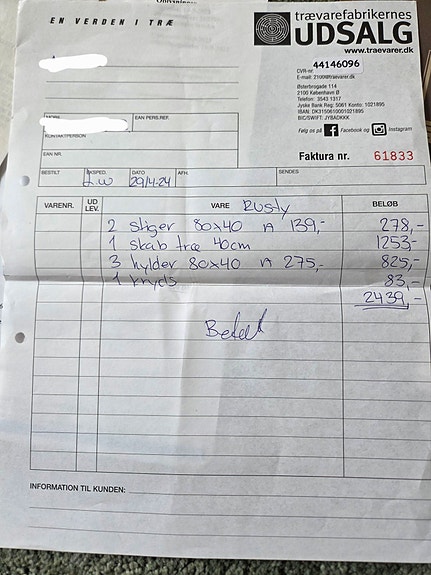 EN VERDEN I TRÆ
trævarefabrikernes
UDSALG
www.traevarer.dk
44146096
CVR-nr.
E-mail: 2100@traevarer.dk
Østerbrogade 114
2100 København Ø
Telefon: 3543 1317
Jyske Bank Reg: 5061 Konto: 1021895
IBAN: DK3150610001021895
BIC/SWIFT: JYBADKKK
Følg os på Facebook og Instagram
EAN PERS.REF.
KONTAKTPERSON
EAN NR.
Faktura nr. 61833
BESTILT EKSPED. DATO AFH. SENDES
L.W 29/4-24
VARENR. UD LEV. VARE Rusty BELØB
2 stiger 80x40 a 139,- 278,-
1 skab træ 40cm 1253-
3 hylder 80x40 a 275,- 825,-
1 kryds 83,-
2439,-
Betalt
INFORMATION TIL KUNDEN: